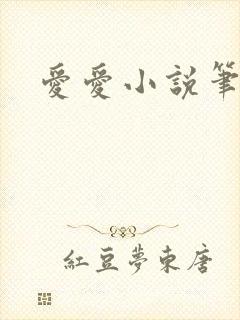 愛愛小說筆
紅豆夢東唐